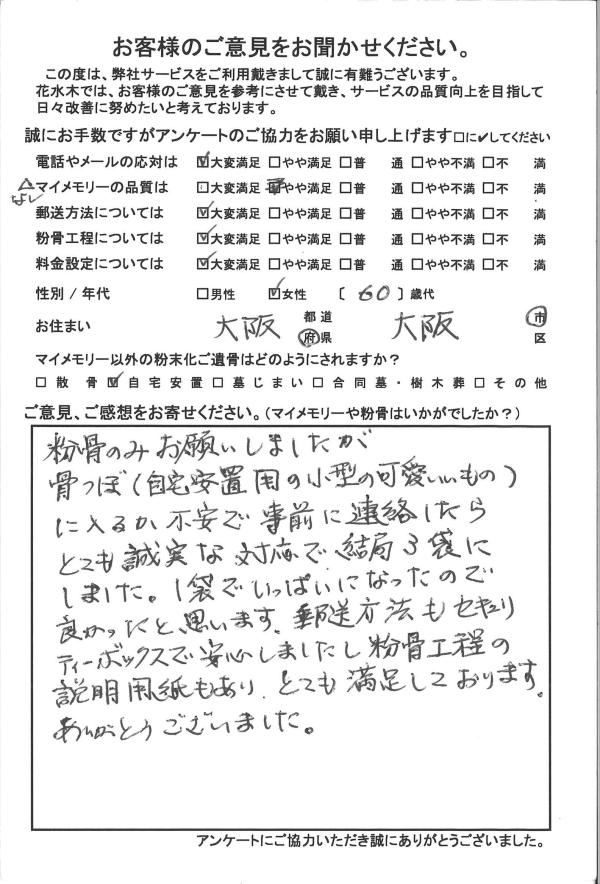 お客様のご意見をお聞かせください。
この度は、弊社サービスをご利用戴きまして誠に有難うございます。
花水木では、お客様のご意見を参考にさせて戴き、サービスの品質向上を目指して
日々改善に努めたいと考えております。
誠にお手数ですがアンケートのご協力をお願い申し上げます□に✔してください
電話やメールの応対は ☑大変満足 □やや満足 □普 通 □やや不満 □不 満
△マイメモリーの品質は □大変満足 □やや満足 □普 通 □やや不満 □不 満
なし
郵送方法については ☑大変満足 □やや満足 □普 通 □やや不満 □不 満
粉骨工程については ☑大変満足 □やや満足 □普 通 □やや不満 □不 満
料金設定については ☑大変満足 □やや満足 □普 通 □やや不満 □不 満
性別 / 年代 □男性 ☑女性 〔 60 〕歳代
お住まい 大阪 都道府県 大阪 市区
マイメモリー以外の粉末化ご遺骨はどのようにされますか?
□散 骨 ☑自宅安置 □墓じまい □合同墓・樹木葬 □その他
ご意見、ご感想をお寄せください。(マイメモリーや粉骨はいかがでしたか?)
粉骨のみお願いしましたが
骨つぼ(自宅安置用の小型の可愛いいもの)
に入るか不安で事前に連絡したら
とても誠実な対応で、結局3袋に
しました。1袋でいっぱいになったので
良かったと思います。郵送方法もセキュリ
ティーボックスで安心しましたし粉骨工程の
説明用紙もあり、とても満足しております。
ありがとうございました。
アンケートにご協力いただき誠にありがとうございました。